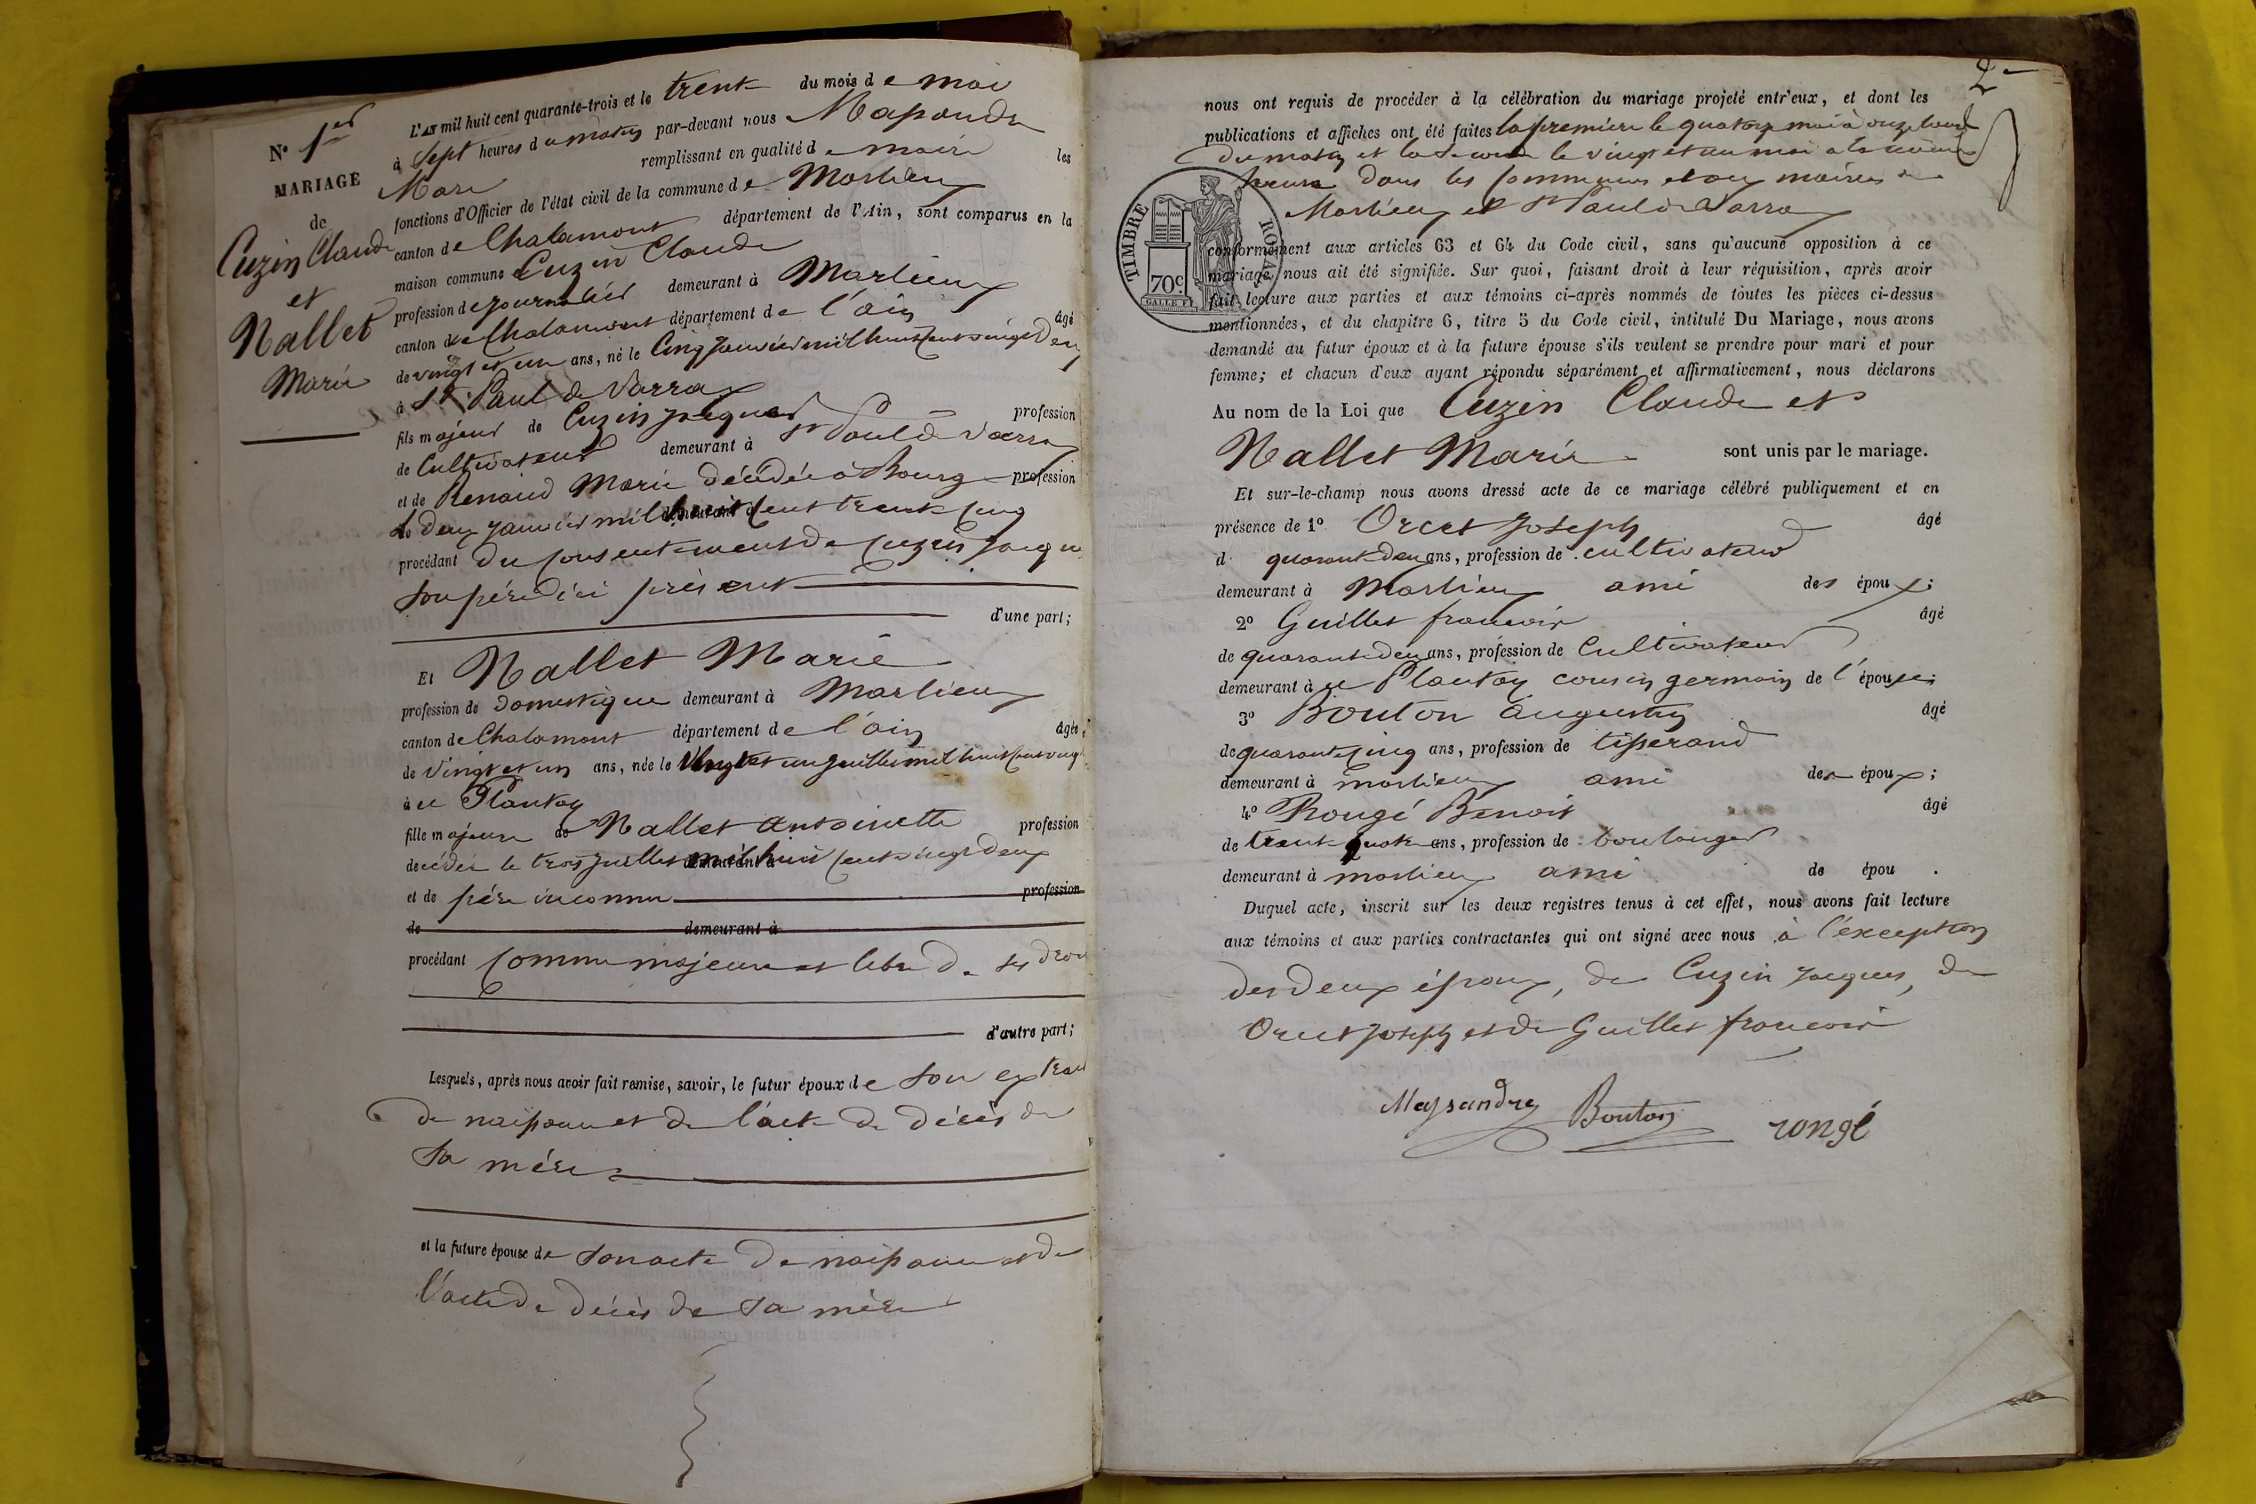 N° 1er
MARIAGE
de
Cuzin Claude
et
Nallet
Marie
L'AN mil huit cent quarante-trois et le trente du mois de mai
à Sept heures du matin par-devant nous
Marc remplissant en qualité de maire les
fonctions d'Officier de l'état civil de la commune de Marlieux
canton de Chalamont département de l'Ain, sont comparus en la
maison commune Cuzin Claude
profession de journalier demeurant à Marlieux
canton de Chalamont département de l'ain âgé
de vingt et un ans, né le Cinq janvier mil huit cent vingt deux
à St Paul de Varrax
fils majeur de Cuzin jacques profession
de Cultivateur demeurant à St Paul de Varrax
et de Renaud Marie décédée à Bourg profession
le deux janvier mil huit cent trente cinq demeurant à
procédant du consentement de Cuzin Jacques
son père d'ici présent
d'une part;
Et Nallet Marie
profession de domestique demeurant à Marlieux
canton de Chalamont département de l'ain âgée
de vingt et un ans, née le vingt et un juillet mil huit cent vingt
à le Plantay
fille majeure de Nallet antoinette profession
décédée le trois juillet mil huit cent vingt deux demeurant à
et de père inconnu profession
de demeurant à
procédant Comme majeure et libre de ses droits
d'autre part;
Lesquels, après nous avoir fait remise, savoir, le futur époux de son extrait
de naissance et de l'acte de décès de
sa mère
et la future épouse de son acte de naissance et de
l'acte de décès de sa mère
2
nous ont requis de procéder à la célébration du mariage projeté entr'eux, et dont les
publications et affiches ont été faites la première le quatorze mai à onze heures
du matin et la seconde le vingt et un mai à la même
heure dans les communes et aux mairies de
Marlieux et St Paul de Varrax
TIMBRE ROYAL
70c.
conformément aux articles 63 et 64 du Code civil, sans qu'aucune opposition à ce
mariage nous ait été signifiée. Sur quoi, faisant droit à leur réquisition, après avoir
fait lecture aux parties et aux témoins ci-après nommés de toutes les pièces ci-dessus
mentionnées, et du chapitre 6, titre 5 du Code civil, intitulé Du Mariage, nous avons
demandé au futur époux et à la future épouse s'ils veulent se prendre pour mari et pour
femme; et chacun d'eux ayant répondu séparément et affirmativement, nous déclarons
Au nom de la Loi que Cuzin Claude et
Nallet Marie sont unis par le mariage.
Et sur-le-champ nous avons dressé acte de ce mariage célébré publiquement et en
présence de 1° Orcet Joseph âgé
d quarante deux ans, profession de cultivateur
demeurant à Marlieux ami des époux;
2° Guillet francois âgé
de quarante deux ans, profession de Cultivateur
demeurant à le Plantay cousin germain de l'épouse;
3° Bouton augustin âgé
de quarante cinq ans, profession de tisserand
demeurant à marlieux ami des époux;
4° Rougé Benoit âgé
de trente quatre ans, profession de boulanger
demeurant à marlieux ami de épou .
Duquel acte, inscrit sur les deux registres tenus à cet effet, nous avons fait lecture
aux témoins et aux parties contractantes qui ont signé avec nous à l'exception
des deux époux, de Cuzin jacques, de
Orcet joseph et de Guillet francois
Bouton rongé